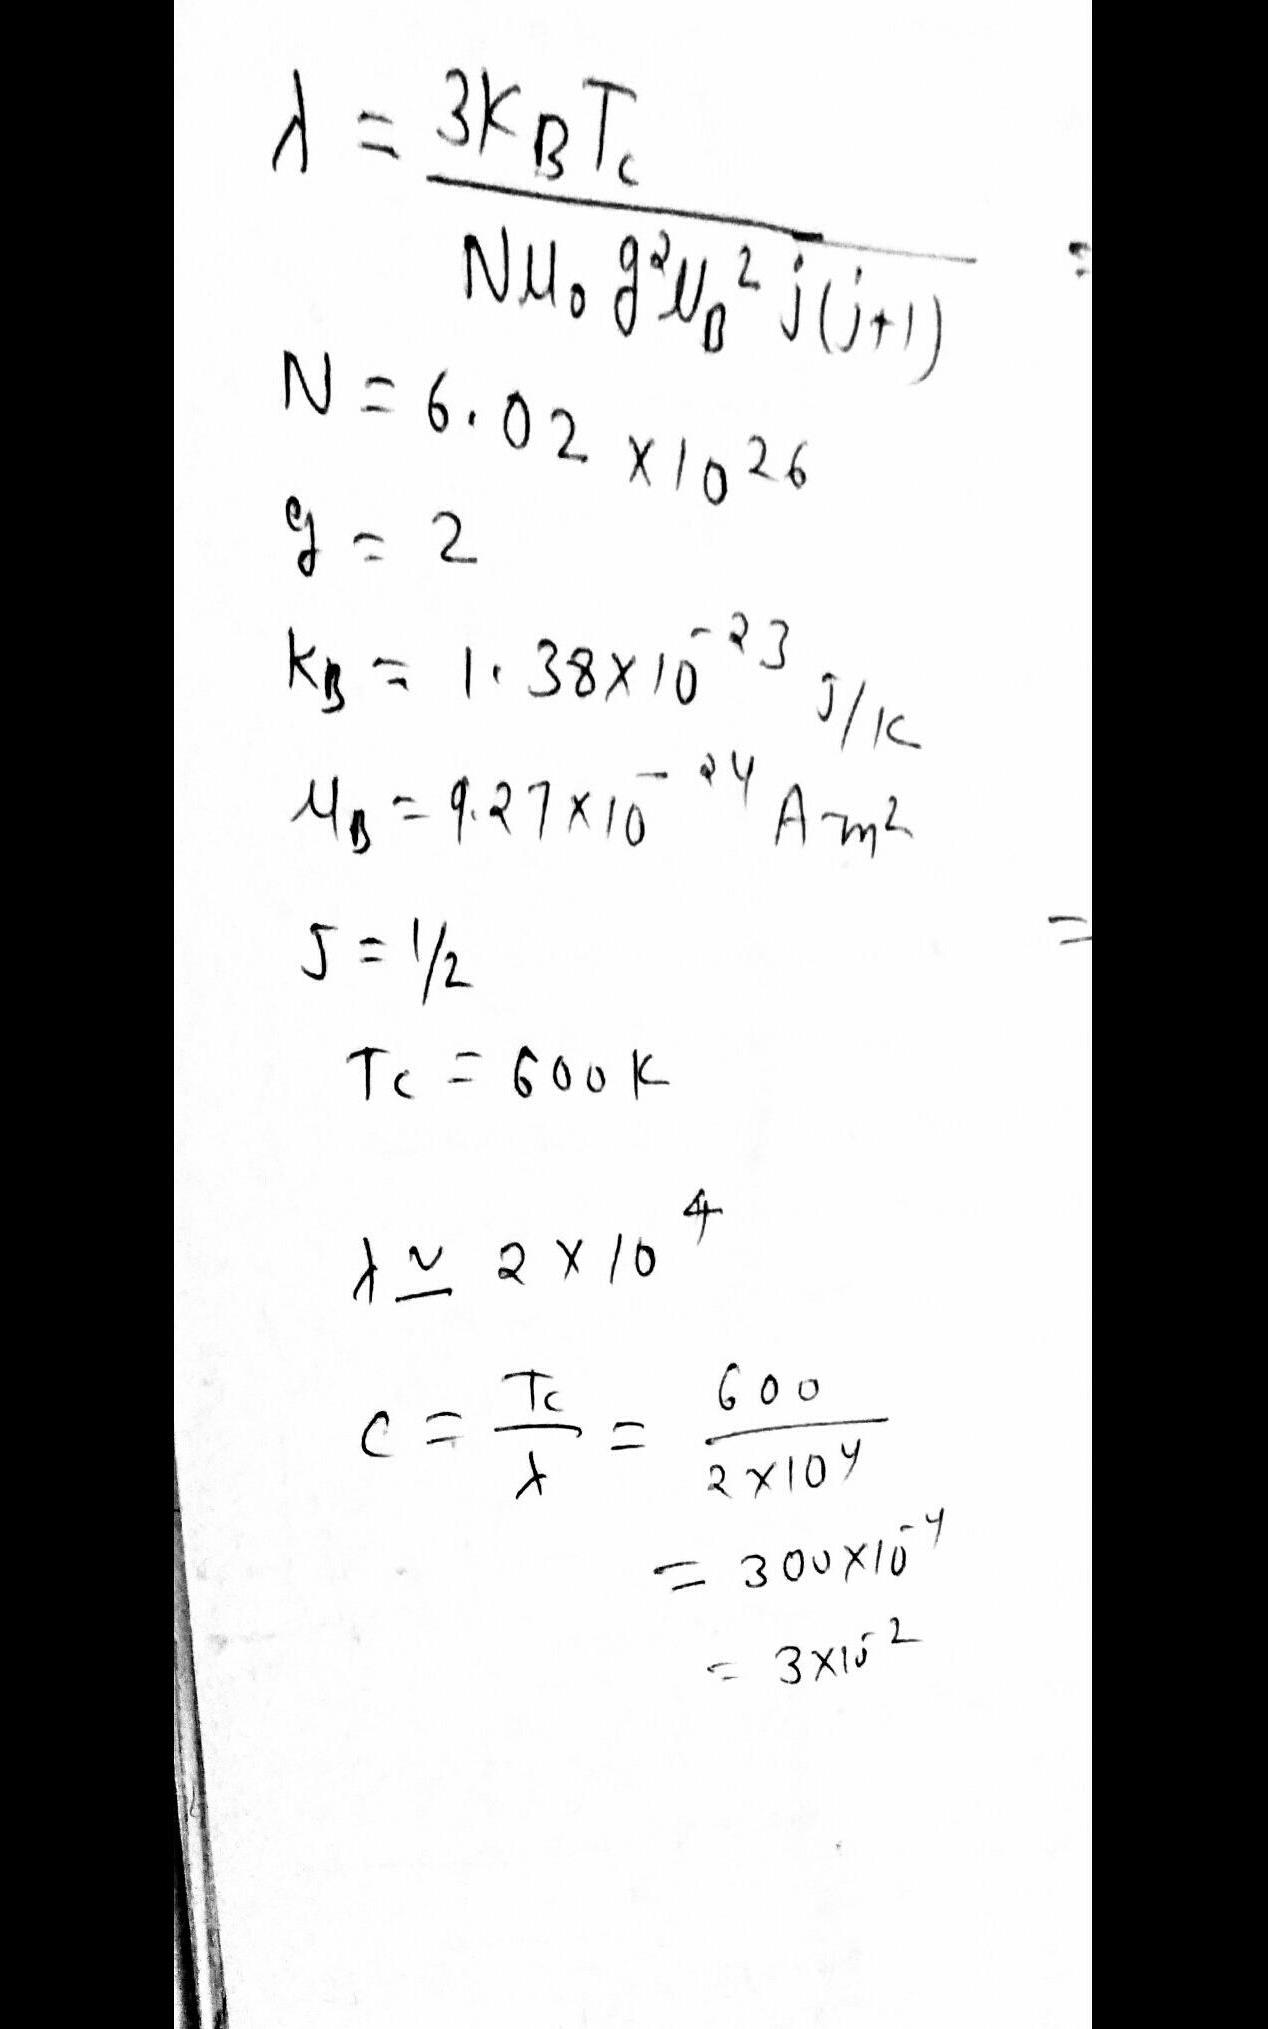 λ = 3KBTc / Nμ0 g²μB² j(j+1) =
N = 6.02 × 10^26
g = 2
KB = 1.38×10^-23 J/K
μB = 9.27×10^-24 A-m²
J = 1/2 =
Tc = 600K
λ ≃ 2 × 10^4
c = Tc/λ = 600 / 2×10^4
= 300×10^-4
= 3×10^-2